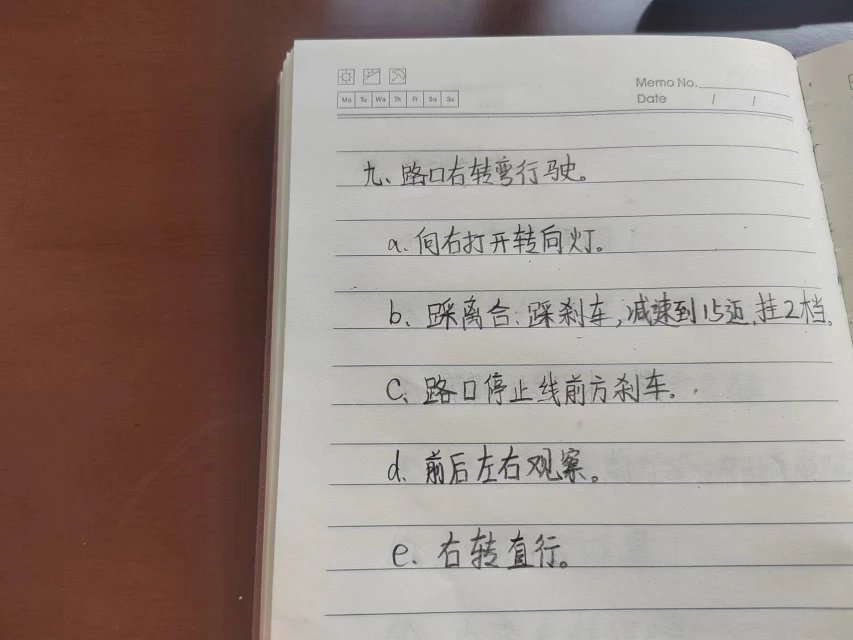 Memo No.
Mo Tu We Th Fr Sa Su
Date / /
九、路口右转弯行驶。
a. 向右打开转向灯。
b、踩离合、踩刹车,减速到15迈,挂2档。
C、路口停止线前方刹车。
d、前后左右观察。
e、右转直行。